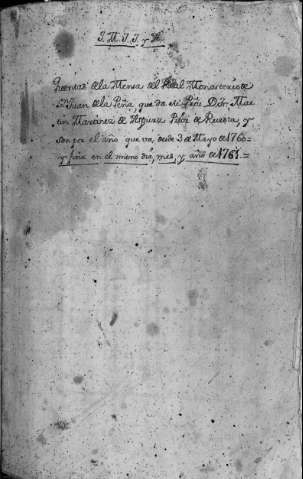 J. M. J. J. y
Quentas de la Mensa del Real Monasterio de
Sn Juan dela Peña, que da el Dr. Dn. Mar
tin Prior de y
son por el año que va, desde 3 de Mayo de 1760=
y fine en el mismo dia, mes, y año de 1761.=